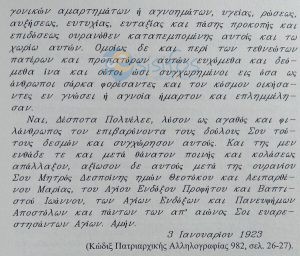 γονικῶν ἁμαρτημάτων ἤ ἀγνοημάτων, ὑγείας, ρώσεως,
αὐξήσεως, εὐτυχίας, εὐταξίας καί πάσης προκοπῆς καί
ἐπιδόσεως οὐρανόθεν καταπεμπομένης αὐτοῖς καί τῷ
χωρίῳ αὐτῶν. Ὁμοίως δέ καί περί τῶν τεθνεώτων
πατέρων καί προπατόρων αὐτῶν εὐχόμεθα καί δεό-
μεθα ἵνα καί ὦσι συγκχωρημένοι εἰς ὅσα ὡς
ἄνθρωποι σάρκα φορέσαντες καί τόν κόσμον οἰκήσα-
ντες ἐν γνώσει ἤ ἀγνοίᾳ ἥμαρτον καί ἐπλημμέλη-
σαν.
Ναί, Δέσποτα Πολυέλεε, λῦσον ὡς ἀγαθός καί φι-
λάνθρωπος τόν ἐπιβαρύνοντα τούς δούλους Σου τού-
τους δεσμόν καί συγχώρησον αὐτούς. Καί τῆς μέν
ἐνθάδε τε καί μετά θάνατον ποινῆς καί κολάσεως
ἀπάλλαξον, ἀξίωσον δέ αὐτούς μετά τῆς οὐρανίου
Σου Μητρός Δεσποίνης ἡμῶν Θεοτόκου καί Ἀειπαρθέ-
νου Μαρίας, τοῦ Ἁγίου Ἐνδόξου Προφήτου καί Βαπτι-
στοῦ Ἰωάννου, τῶν Ἁγίων Ἐνδόξων καί Πανευφήμων
Ἀποστόλων καί πάντων τῶν ἀπ' αἰῶνος Σοι εὐαρε-
στησάντων Ἁγίων. Ἀμήν.
3 Ἰανουαρίου 1923
(Κώδιξ Πατριαρχικῆς Ἀλληλογραφίας 982, σελ. 26-27).